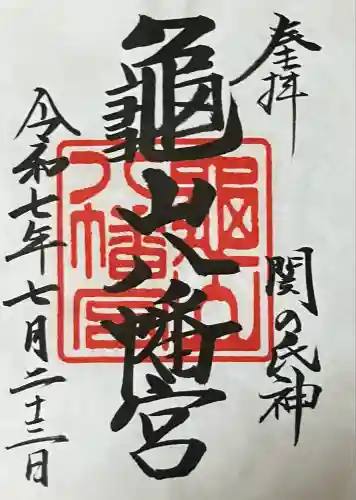 奉拝
関の氏神
龜山八幡宮
龜山八幡宮
令和七年七月二十三日